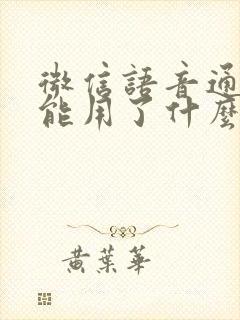 微信語音通
能用了什麼
黃葉華